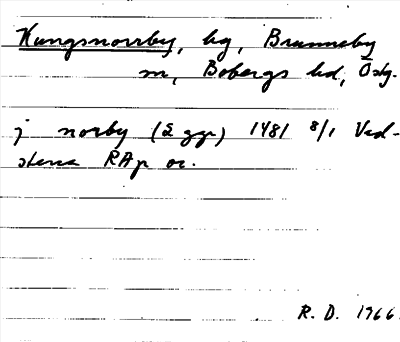 Kungsnorrby, by, Brunneby
sn, Bobergs hd, Östg.
j norby (2 ggr) 1481 8/1 Vad-
stena RAp or.
R. D. 1966